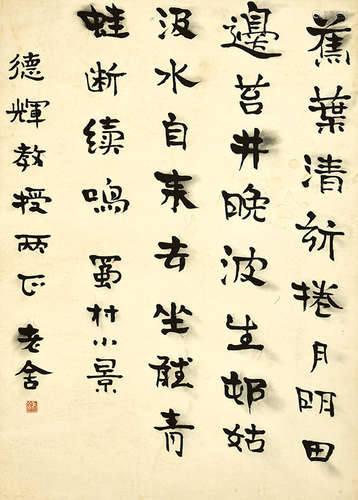 蕉葉清新捲月明田
邊苔井晚波生邨姑
汲水自来去坐聽青
蛙断续鳴 蜀村小景
德輝教授两正 老舍